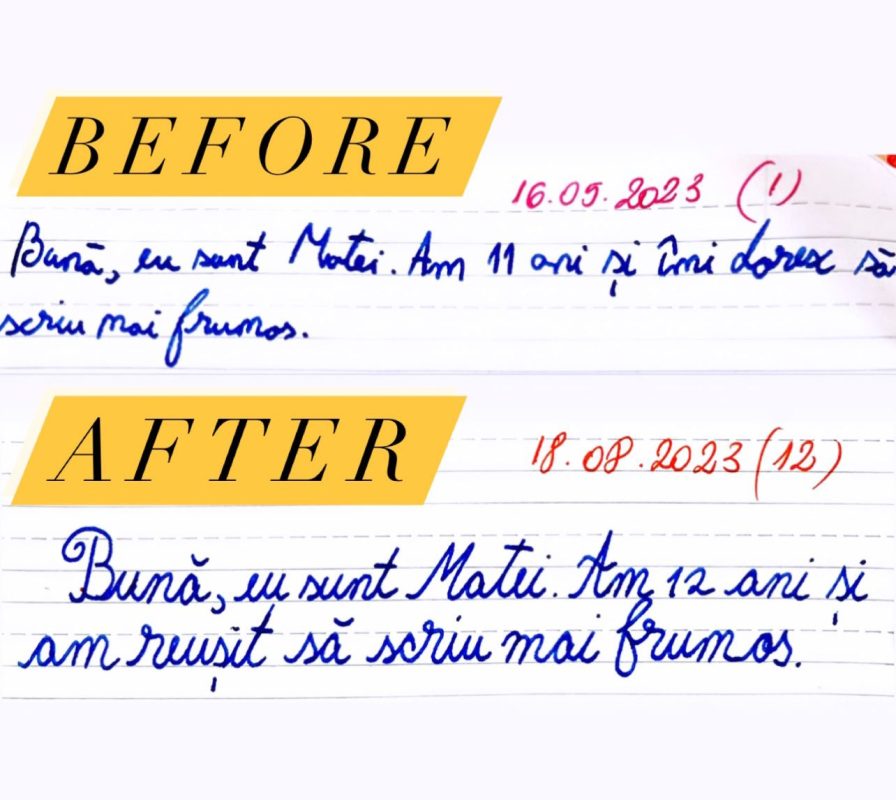 BEFORE
16.05.2023 (1)
Bună, eu sunt Matei. Am 11 ani și îmi doresc să
scriu mai frumos.
AFTER
18.08.2023 (12)
Bună, eu sunt Matei. Am 12 ani și
am reușit să scriu mai frumos.